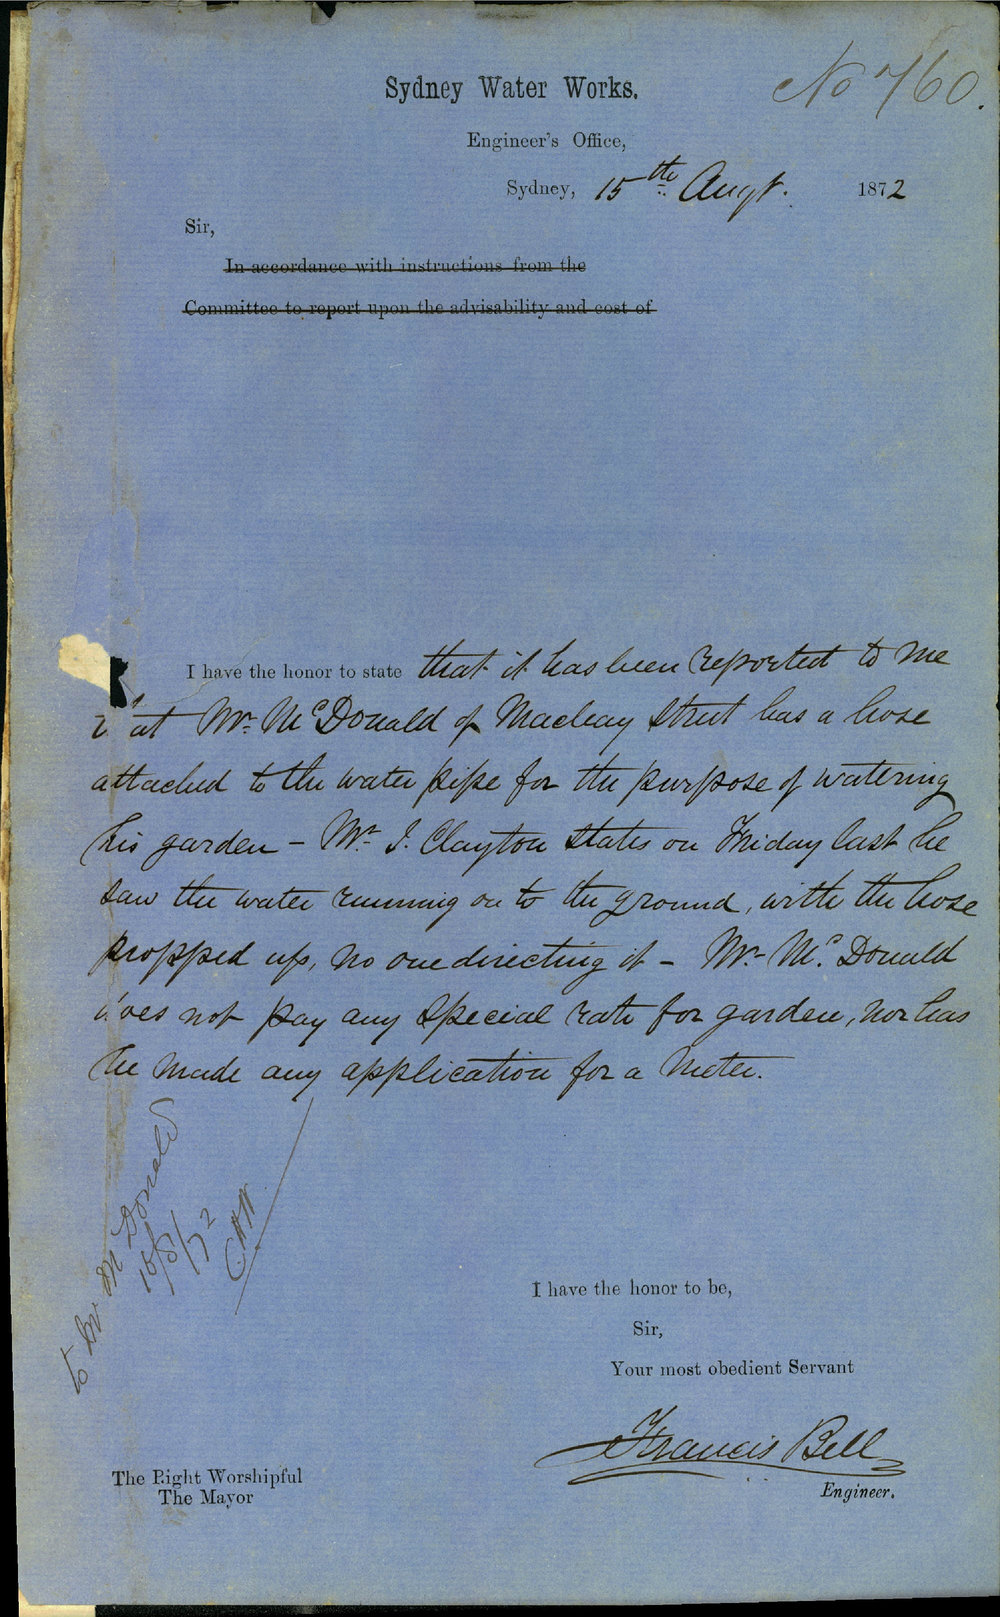 No 760.
Sydney Water Works.
Engineer's Office,
Sydney, 15th Augt. 1872
Sir,
In accordance with instructions from the
Committee to report upon the advisability and cost of
I have the honor to state that it has been reported to me
that Mr. McDonald of Macleay Street has a hose
attached to the water pipe for the purpose of watering
his garden – Mr. J. Clayton states on Friday last he
saw the water running on to the ground, with the hose
propped up, no one directing it – Mr. Mc.Donald
does not pay any special rate for garden, nor has
he made any application for a meter.
to Mr McDonald
15/8/72
I have the honor to be,
Sir,
Your most obedient Servant
Francis Bell
Engineer.
The Right Worshipful
The Mayor